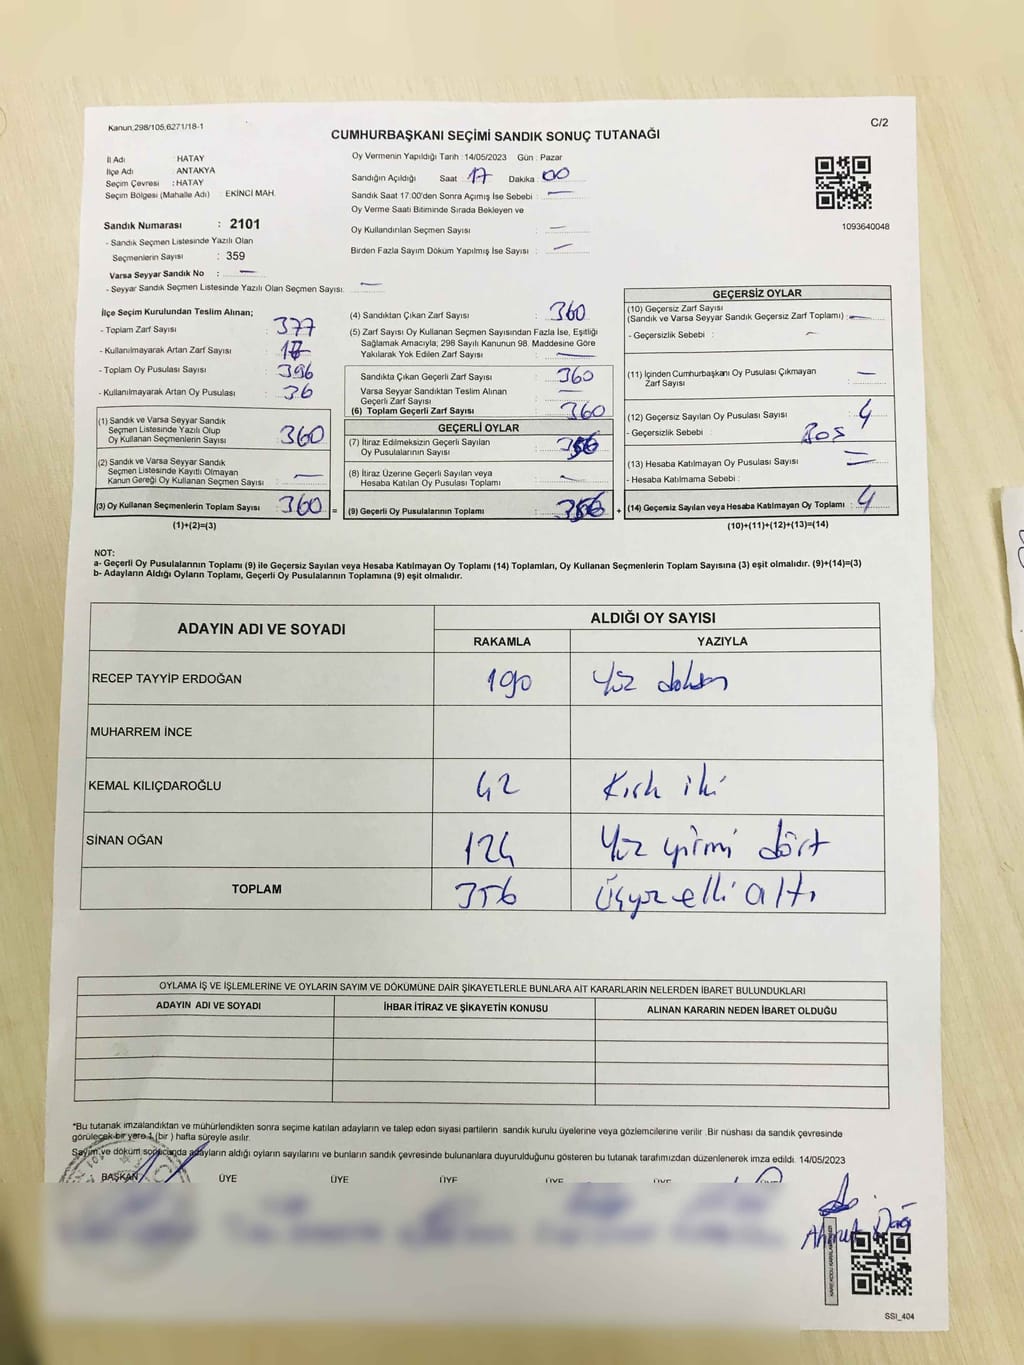 Kanun,298/105,6271/18-1
C/2
CUMHURBAŞKANI SEÇİMİ SANDIK SONUÇ TUTANAĞI
İl Adı : HATAY
İlçe Adı : ANTAKYA
Seçim Çevresi : HATAY
Seçim Bölgesi (Mahalle Adı) : EKİNCİ MAH.
Oy Vermenin Yapıldığı Tarih :14/05/2023 Gün : Pazar
Sandığın Açıldığı Saat 17 Dakika 00
Sandık Saat 17:00'den Sonra Açımış İse Sebebi : —
Oy Verme Saati Bitiminde Sırada Bekleyen ve
Oy Kullandırılan Seçmen Sayısı : —
Birden Fazla Sayım Döküm Yapılmış İse Sayısı : —
1093640048
Sandık Numarası : 2101
- Sandık Seçmen Listesinde Yazılı Olan
Seçmenlerin Sayısı : 359
Varsa Seyyar Sandık No : —
- Seyyar Sandık Seçmen Listesinde Yazılı Olan Seçmen Sayısı: —
İlçe Seçim Kurulundan Teslim Alınan;
- Toplam Zarf Sayısı : 377
- Kullanılmayarak Artan Zarf Sayısı : 17
- Toplam Oy Pusulası Sayısı : 396
- Kullanılmayarak Artan Oy Pusulası : 36
(1) Sandık ve Varsa Seyyar Sandık
Seçmen Listesinde Yazılı Olup
Oy Kullanan Seçmenlerin Sayısı : 360
(2) Sandık ve Varsa Seyyar Sandık
Seçmen Listesinde Kayıtlı Olmayan
Kanun Gereği Oy Kullanan Seçmen Sayısı : —
(3) Oy Kullanan Seçmenlerin Toplam Sayısı : 360 =
(1)+(2)=(3)
(4) Sandıktan Çıkan Zarf Sayısı : 360
(5) Zarf Sayısı Oy Kullanan Seçmen Sayısından Fazla İse, Eşitliği
Sağlamak Amacıyla; 298 Sayılı Kanunun 98. Maddesine Göre
Yakılarak Yok Edilen Zarf Sayısı : —
Sandıkta Çıkan Geçerli Zarf Sayısı : 360
Varsa Seyyar Sandıktan Teslim Alınan
Geçerli Zarf Sayısı : —
(6) Toplam Geçerli Zarf Sayısı : 360
GEÇERLİ OYLAR
(7) İtiraz Edilmeksizin Geçerli Sayılan
Oy Pusulalarının Sayısı : 356
(8) İtiraz Üzerine Geçerli Sayılan veya
Hesaba Katılan Oy Pusulası Toplamı : —
(9) Geçerli Oy Pusulalarının Toplamı : 356 +
GEÇERSİZ OYLAR
(10) Geçersiz Zarf Sayısı
(Sandık ve Varsa Seyyar Sandık Geçersiz Zarf Toplamı) : —
- Geçersizlik Sebebi : —
(11) İçinden Cumhurbaşkanı Oy Pusulası Çıkmayan
Zarf Sayısı : —
(12) Geçersiz Sayılan Oy Pusulası Sayısı : 4
- Geçersizlik Sebebi : Boş
(13) Hesaba Katılmayan Oy Pusulası Sayısı : —
- Hesaba Katılmama Sebebi : —
(14) Geçersiz Sayılan veya Hesaba Katılmayan Oy Toplamı : 4
(10)+(11)+(12)+(13)=(14)
NOT:
a- Geçerli Oy Pusulalarının Toplamı (9) ile Geçersiz Sayılan veya Hesaba Katılmayan Oy Toplamı (14) Toplamları, Oy Kullanan Seçmenlerin Toplam Sayısına (3) eşit olmalıdır. (9)+(14)=(3)
b- Adayların Aldığı Oyların Toplamı, Geçerli Oy Pusulalarının Toplamına (9) eşit olmalıdır.
ADAYIN ADI VE SOYADI
ALDIĞI OY SAYISI
RAKAMLA YAZIYLA
RECEP TAYYİP ERDOĞAN 190 Yüz doksan
MUHARREM İNCE
KEMAL KILIÇDAROĞLU 42 Kırk iki
SİNAN OĞAN 124 Yüz yirmi dört
TOPLAM 356 Üçyüz elli altı
OYLAMA İŞ VE İŞLEMLERİNE VE OYLARIN SAYIM VE DÖKÜMÜNE DAİR ŞİKAYETLERLE BUNLARA AİT KARARLARIN NELERDEN İBARET BULUNDUKLARI
ADAYIN ADI VE SOYADI İHBAR İTİRAZ VE ŞİKAYETİN KONUSU ALINAN KARARIN NEDEN İBARET OLDUĞU
*Bu tutanak imzalandıktan ve mühürlendikten sonra seçime katılan adayların ve talep eden siyasi partilerin sandık kurulu üyelerine veya gözlemcilerine verilir .Bir nüshası da sandık çevresinde
görülecek bir yere 1 (bir ) hafta süreyle asılır.
Sayım ve döküm sonucunda adayların aldığı oyların sayılarını ve bunların sandık çevresinde bulunanlara duyurulduğunu gösteren bu tutanak tarafımızdan düzenlenerek imza edildi. 14/05/2023
BAŞKAN ÜYE ÜYE ÜYE ÜYE ÜYE
Ahmut Dağ
SSI_404